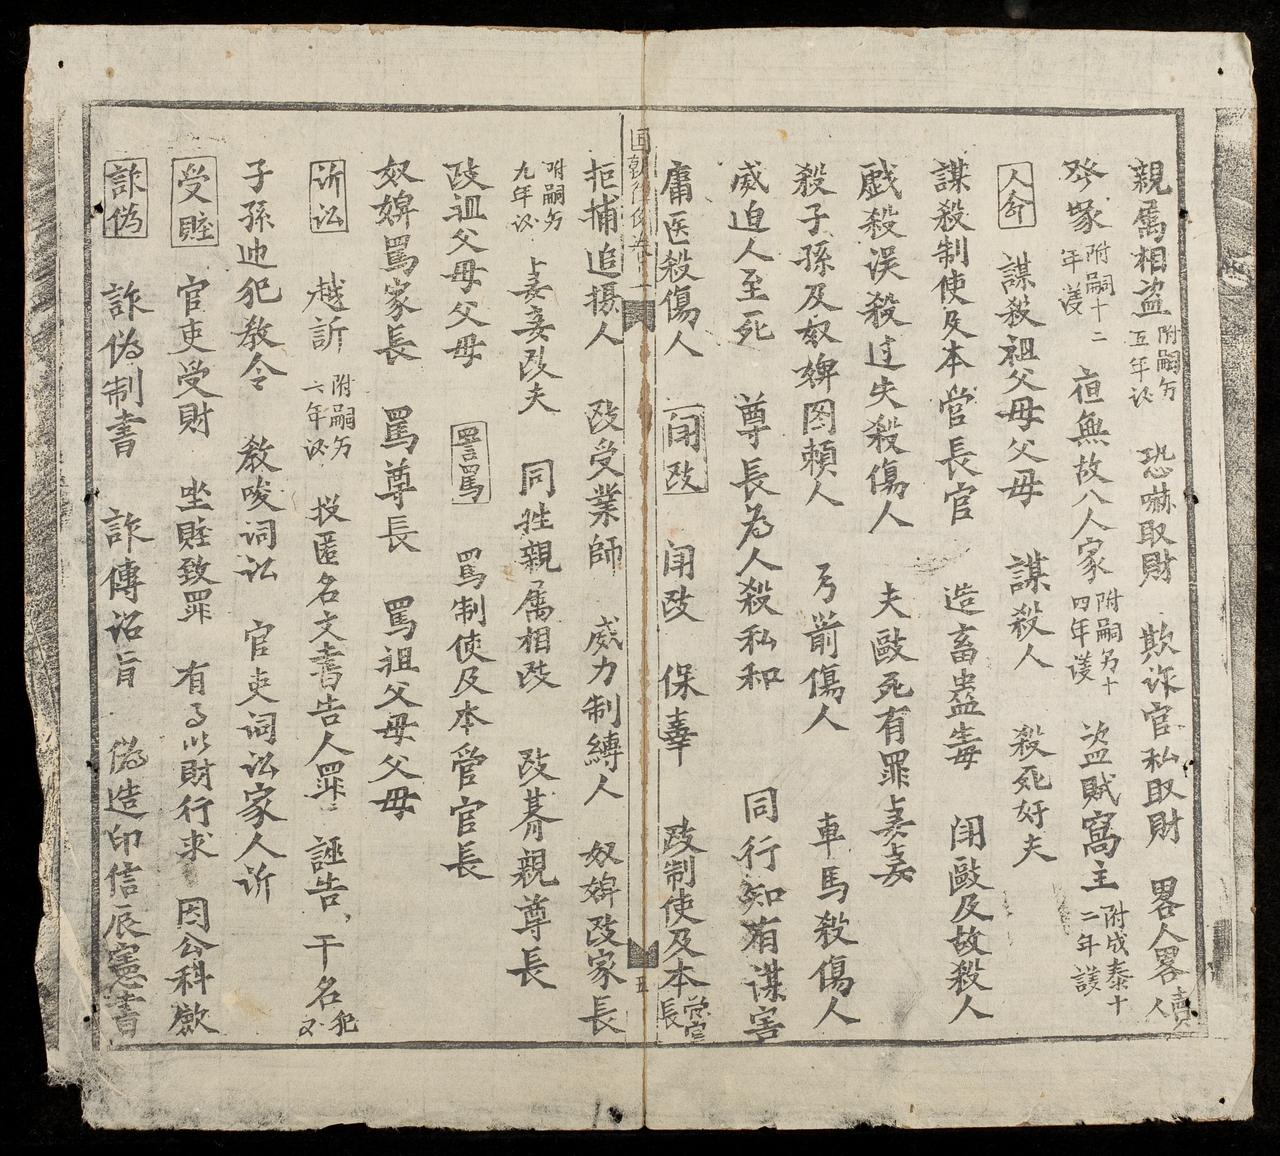 親属相盗 附嗣𠃔五年议 恐嚇取財 欺诈官私取財 畧人畧賣人
發塚 附嗣十二年議 夜無故入人家 附嗣𠃔十四年議 盗賊窩主 附成泰十二年議
人命 謀殺祖父母父母 謀殺人 殺死奸夫
謀殺制使及本管長官 造畜蠱毒 闘毆及故殺人
戲殺误殺过失殺傷人 夫毆死有罪妻妾
殺子孫及奴婢图頼人 弓箭傷人 車馬殺傷人
威迫人至死 尊長為人殺私和 同行知有谋害
庸医殺傷人 闘政 闘政 保辜 政制使及本管官長
国朝律例 卷一 五
拒捕追摄人 政受業師 威力制縛人 奴婢政家長
附嗣𠃔九年议 妻妾政夫 同姓親属相政 政朞親尊長
政祖父母父母 詈罵 罵制使及本管官長
奴婢罵家長 罵尊長 罵祖父母父母
訴讼 越訴 附嗣𠃔六年议 投匿名文書告人罪 誣告 干名犯义
子孫违犯教令 教唆词讼 官吏词讼家人訴
受賍 官吏受財 坐賍致罪 有事以財行求 因公科歛
詐偽 詐偽制書 詐傳诏旨 偽造印信辰憲書